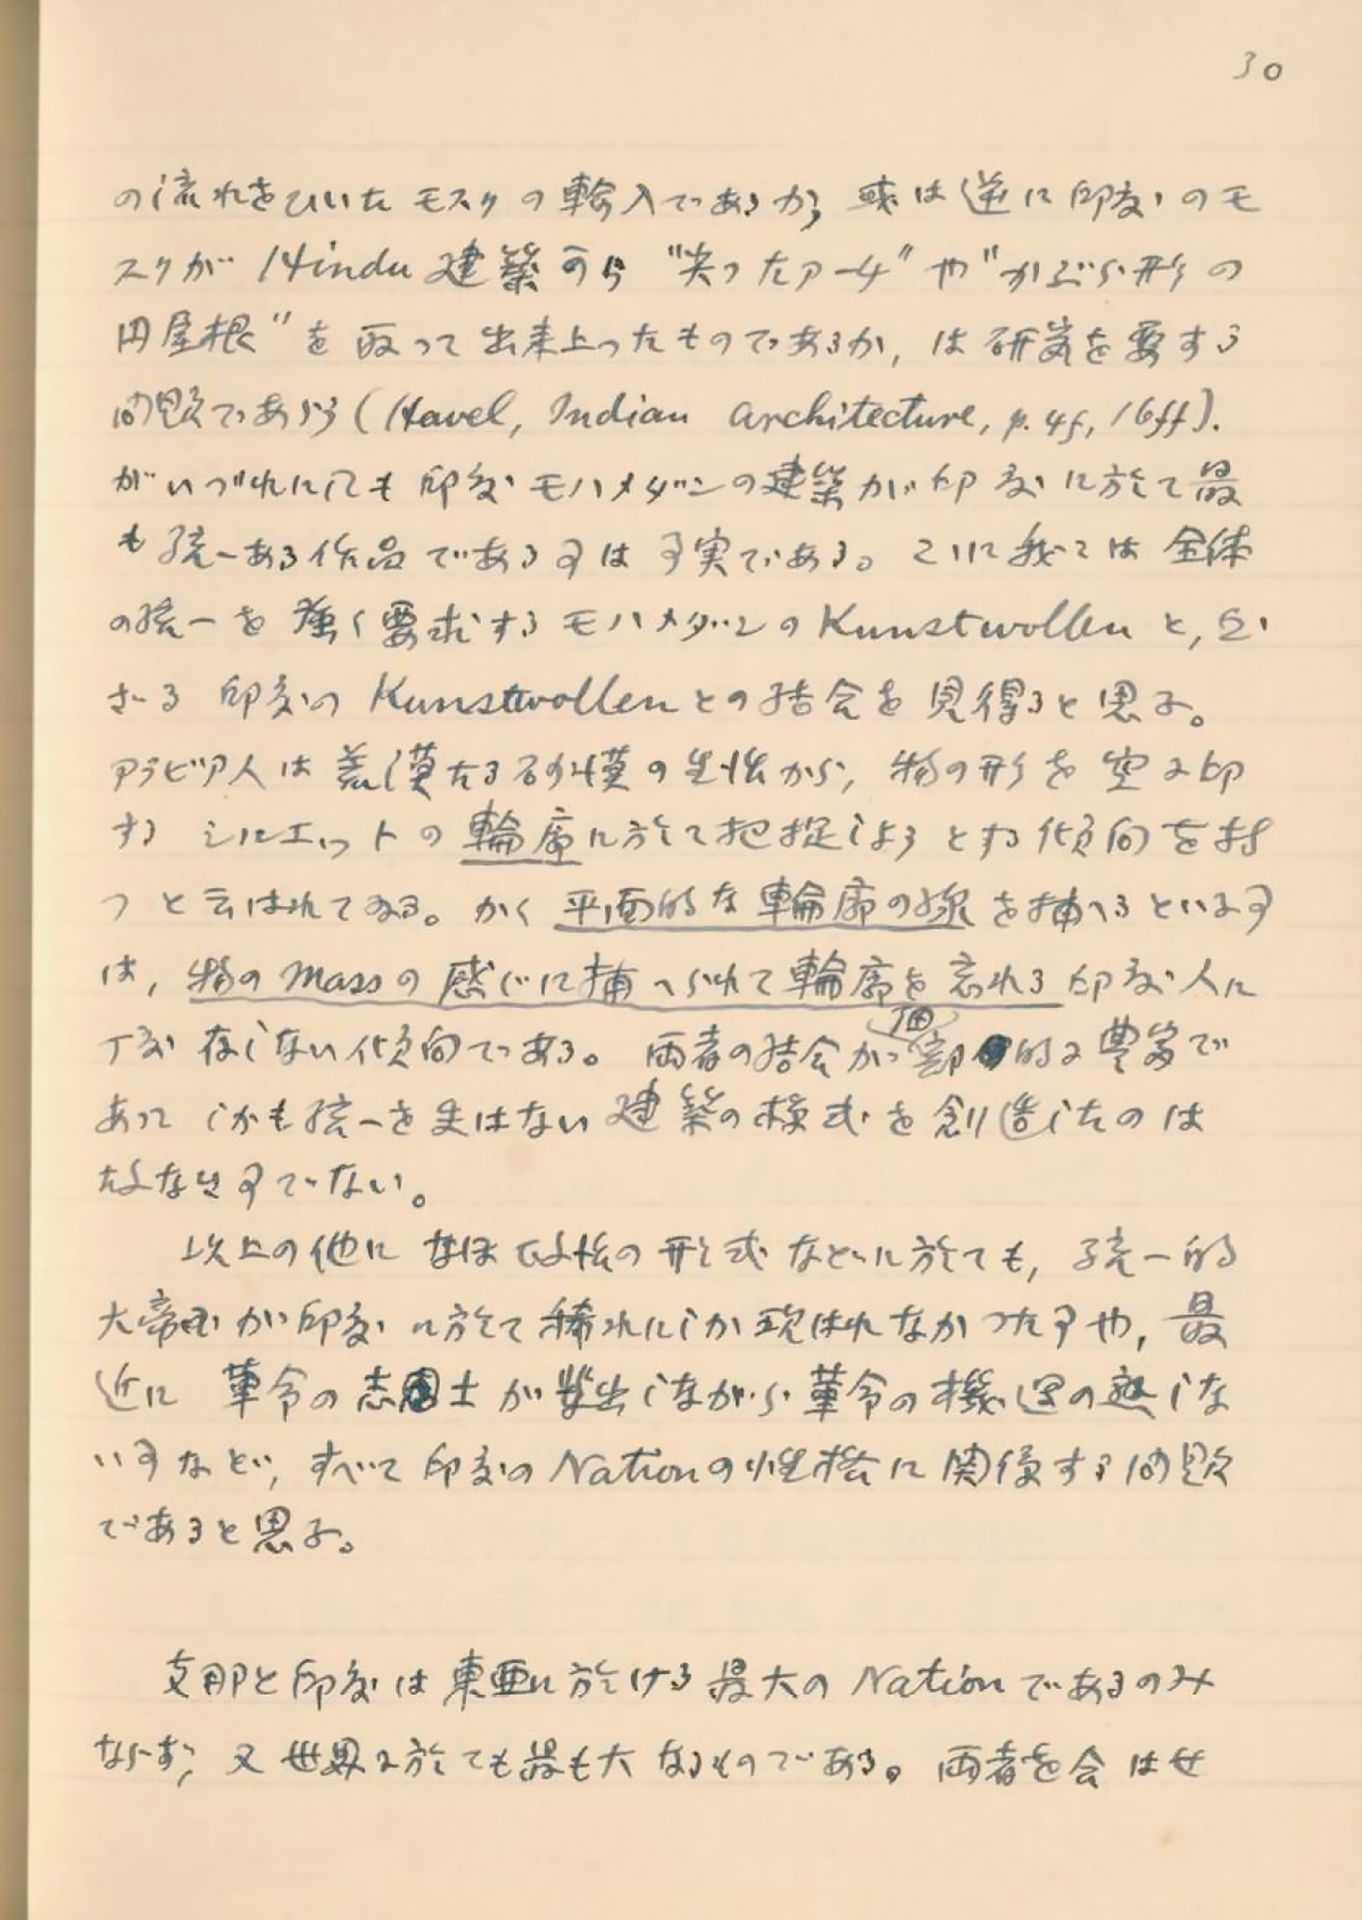 30
の流れをひいたモスクの輸入であるか、或は逆に印度のモ
スクが Hindu 建築から "尖ったアーチ" や "かぶら形の
円屋根" を取って出来上ったものであるか, は研究を要する
問題であらう (Havel, Indian architecture, p. 4f, 16ff).
がいづれにしても印度モハメダンの建築が印度に於て最
も統一ある作品である事は事実である。こゝに我々は全体
の統一を強く要求するモハメダンの Kunstwollen と,
ざる印度の Kunstwollen との結合を見得ると思ふ。
アラビア人は荒漠たる砂漠の生活から, 物の形を空に印
する シルエットの輪廓に於て把捉しようとする傾向を持
つと云はれてゐる。かく平面的な輪廓の線を捕へるといふ事
は, 物の mass の感じに捕へられて輪廓を忘れる印度人に
丁度存しない傾向である。両者の結合が 個 部的に豊富で
あつてしかも統一を失はない建築の様式を創造したのは
な事でない。
以上の他になほ の形式などに於ても, 統一的
大帝国が印度に於て稀れにしか現はれなかつた事や, 最
近に革命の志士が輩出しながら革命の機運の熟しな
い事など, すべて印度の Nation の性格に関係する問題
であると思ふ。
支那と印度は東亜に於ける最大の Nation であるのみ
ならず, 又世界に於ても最も大なるものである。両者を合はせ